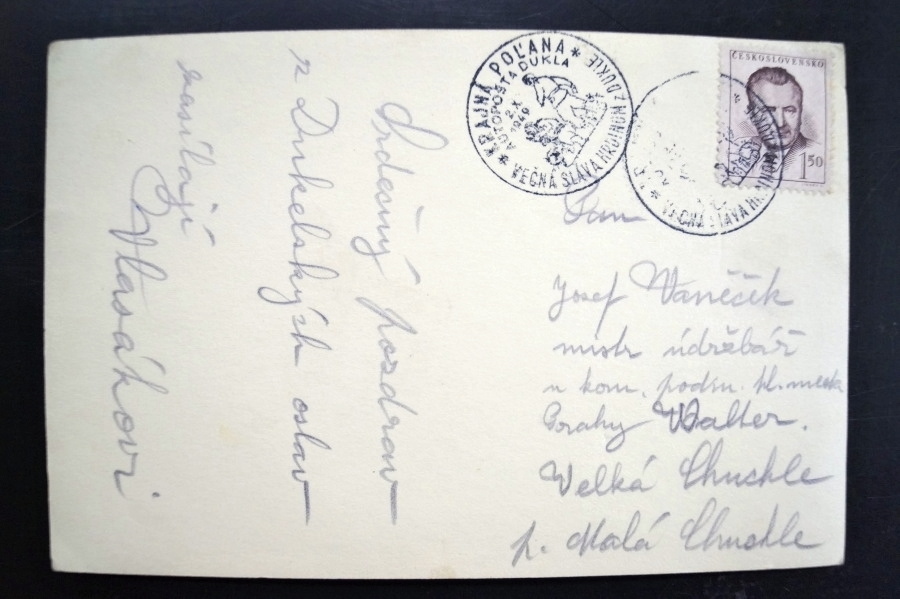 Srdečný pozdrav
z Dukelských oslav
zasílají
Vlasákovi
* KRAJNÁ POĽANA *
VEČNÁ SLÁVA HRDINOM Z DUKLE
AUTOPOŠTA DUKLA
2.X.
1949
ČESKOSLOVENSKO
1 50
VEČNÁ SLÁVA HRDINOM Z DUKLE
Pan
Josef Vaněček
mistr údržbář
u kom. podn. hl. města
Prahy Walter.
Velká Chuchle
p. Malá Chuchle